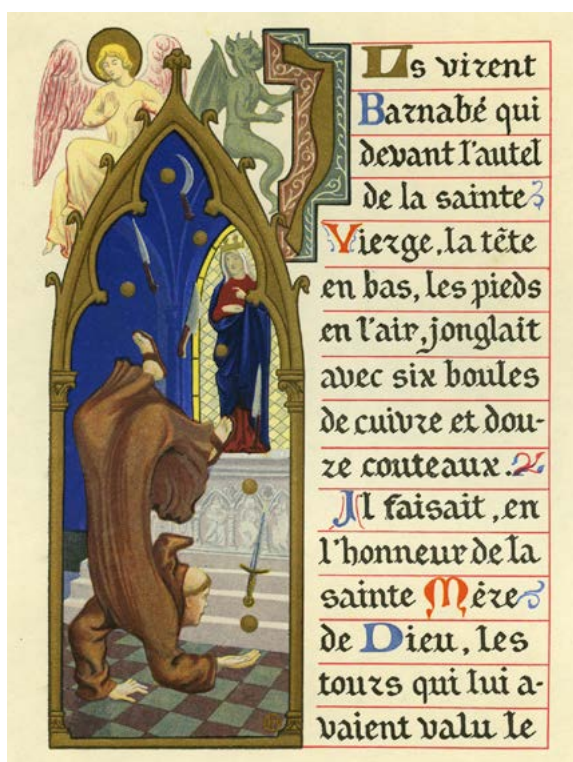 ILs virent
Barnabé qui
devant l'autel
de la sainte
Vierge, la tête
en bas, les pieds
en l'air, jonglait
avec six boules
de cuivre et dou-
ze couteaux.
Il faisait, en
l'honneur de la
sainte Mère
de Dieu, les
tours qui lui a-
vaient valu le